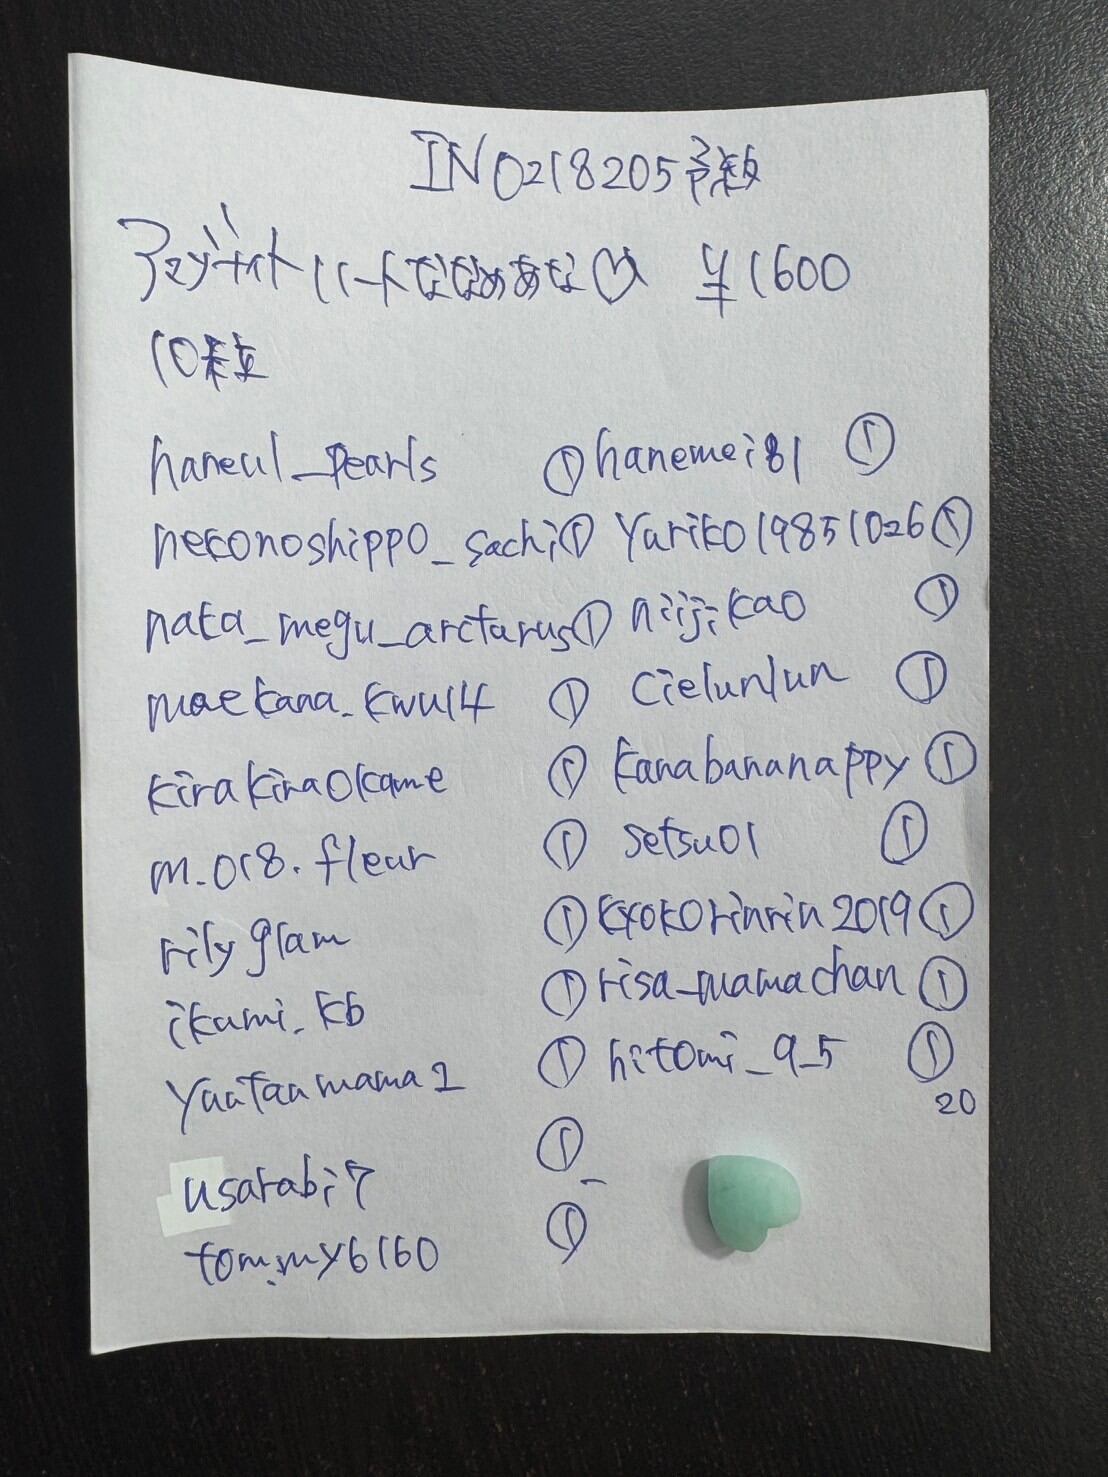 IN0218205予約
アマゾナイトハートななめあな♡ ¥1600
10粒
haneul_pearls ① hanemei81 ①
nekonoshippo_sachi ① Yuriko19851026 ①
nata_megu_arcturus ① niijikao ①
maekana_kwu14 ① cielunlun ①
kirakiraokame ① kanabananappy ①
m.018.fleur ① setsu01 ①
rilyglam ① kyokorinrin2019 ①
ikumi_kb ① risa_mamachan ①
yuutanmama2 ① hitomi_9_5 ①
20
usarabi7 ①
tommy6160 ①